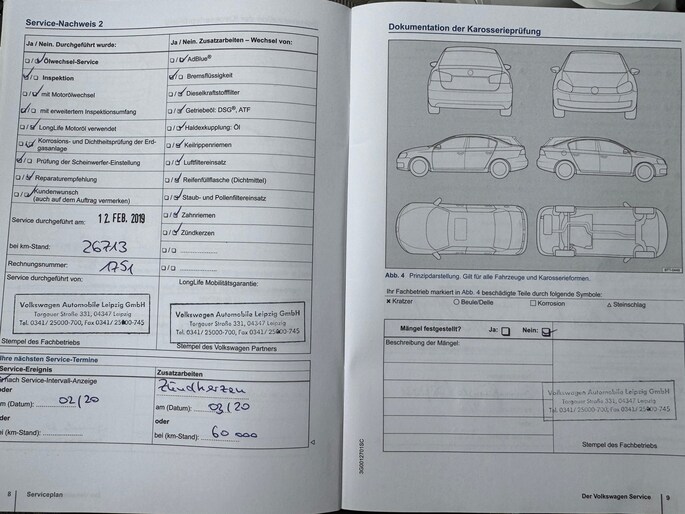 Service-Nachweis 2
Ja / Nein. Durchgeführt wurde:
Ölwechsel-Service
Inspektion
mit Motorölwechsel
mit erweitertem Inspektionsumfang
LongLife Motoröl verwendet
Korrosions- und Dichtheitsprüfung der Erd-
gasanlage
Prüfung der Scheinwerfer-Einstellung
Reparaturempfehlung
Kundenwunsch
(auch auf dem Auftrag vermerken)
Service durchgeführt am: 12. FEB. 2019
bei km-Stand: 26713
Rechnungsnummer: 1751
Service durchgeführt von:
Volkswagen Automobile Leipzig GmbH
Torgauer Straße 331, 04347 Leipzig
Tel. 0341 / 25000-700, Fax 0341 / 25000-745
Stempel des Fachbetriebs
Ja / Nein. Zusatzarbeiten – Wechsel von:
AdBlue®
Bremsflüssigkeit
Dieselkraftstofffilter
Getriebeöl: DSG®, ATF
Haldexkupplung: Öl
Keilrippenriemen
Luftfiltereinsatz
Reifenfüllflasche (Dichtmittel)
Staub- und Pollenfiltereinsatz
Zahnriemen
Zündkerzen
LongLife Mobilitätsgarantie:
Volkswagen Automobile Leipzig GmbH
Torgauer Straße 331, 04347 Leipzig
Tel. 0341 / 25000-700, Fax 0341 / 25000-745
Stempel des Volkswagen Partners
Ihre nächsten Service-Termine
Service-Ereignis
nach Service-Intervall-Anzeige
oder
am (Datum): 02/20
oder
bei (km-Stand):
Zusatzarbeiten
Zündkerzen
am (Datum): 03/20
oder
bei (km-Stand): 60 000
8 Serviceplan
Dokumentation der Karosserieprüfung
Abb. 4 Prinzipdarstellung. Gilt für alle Fahrzeuge und Karosserieformen.
Ihr Fachbetrieb markiert in Abb. 4 beschädigte Teile durch folgende Symbole:
× Kratzer ○ Beule/Delle □ Korrosion △ Steinschlag
Mängel festgestellt? Ja: Nein:
Beschreibung der Mängel:
Volkswagen Automobile Leipzig GmbH
Torgauer Straße 331, 04347 Leipzig
Tel. 0341 / 25000-700, Fax 0341 / 25000-745
Stempel des Fachbetriebs
Der Volkswagen Service 9